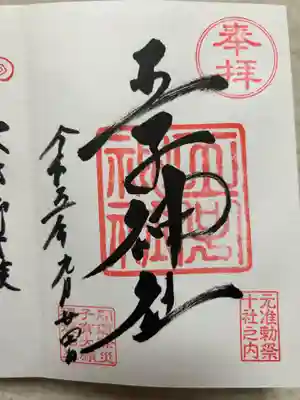 奉拝
王子神社
元准勅祭
十社之内
令和五年九月廿四日
開運除災
子育大願